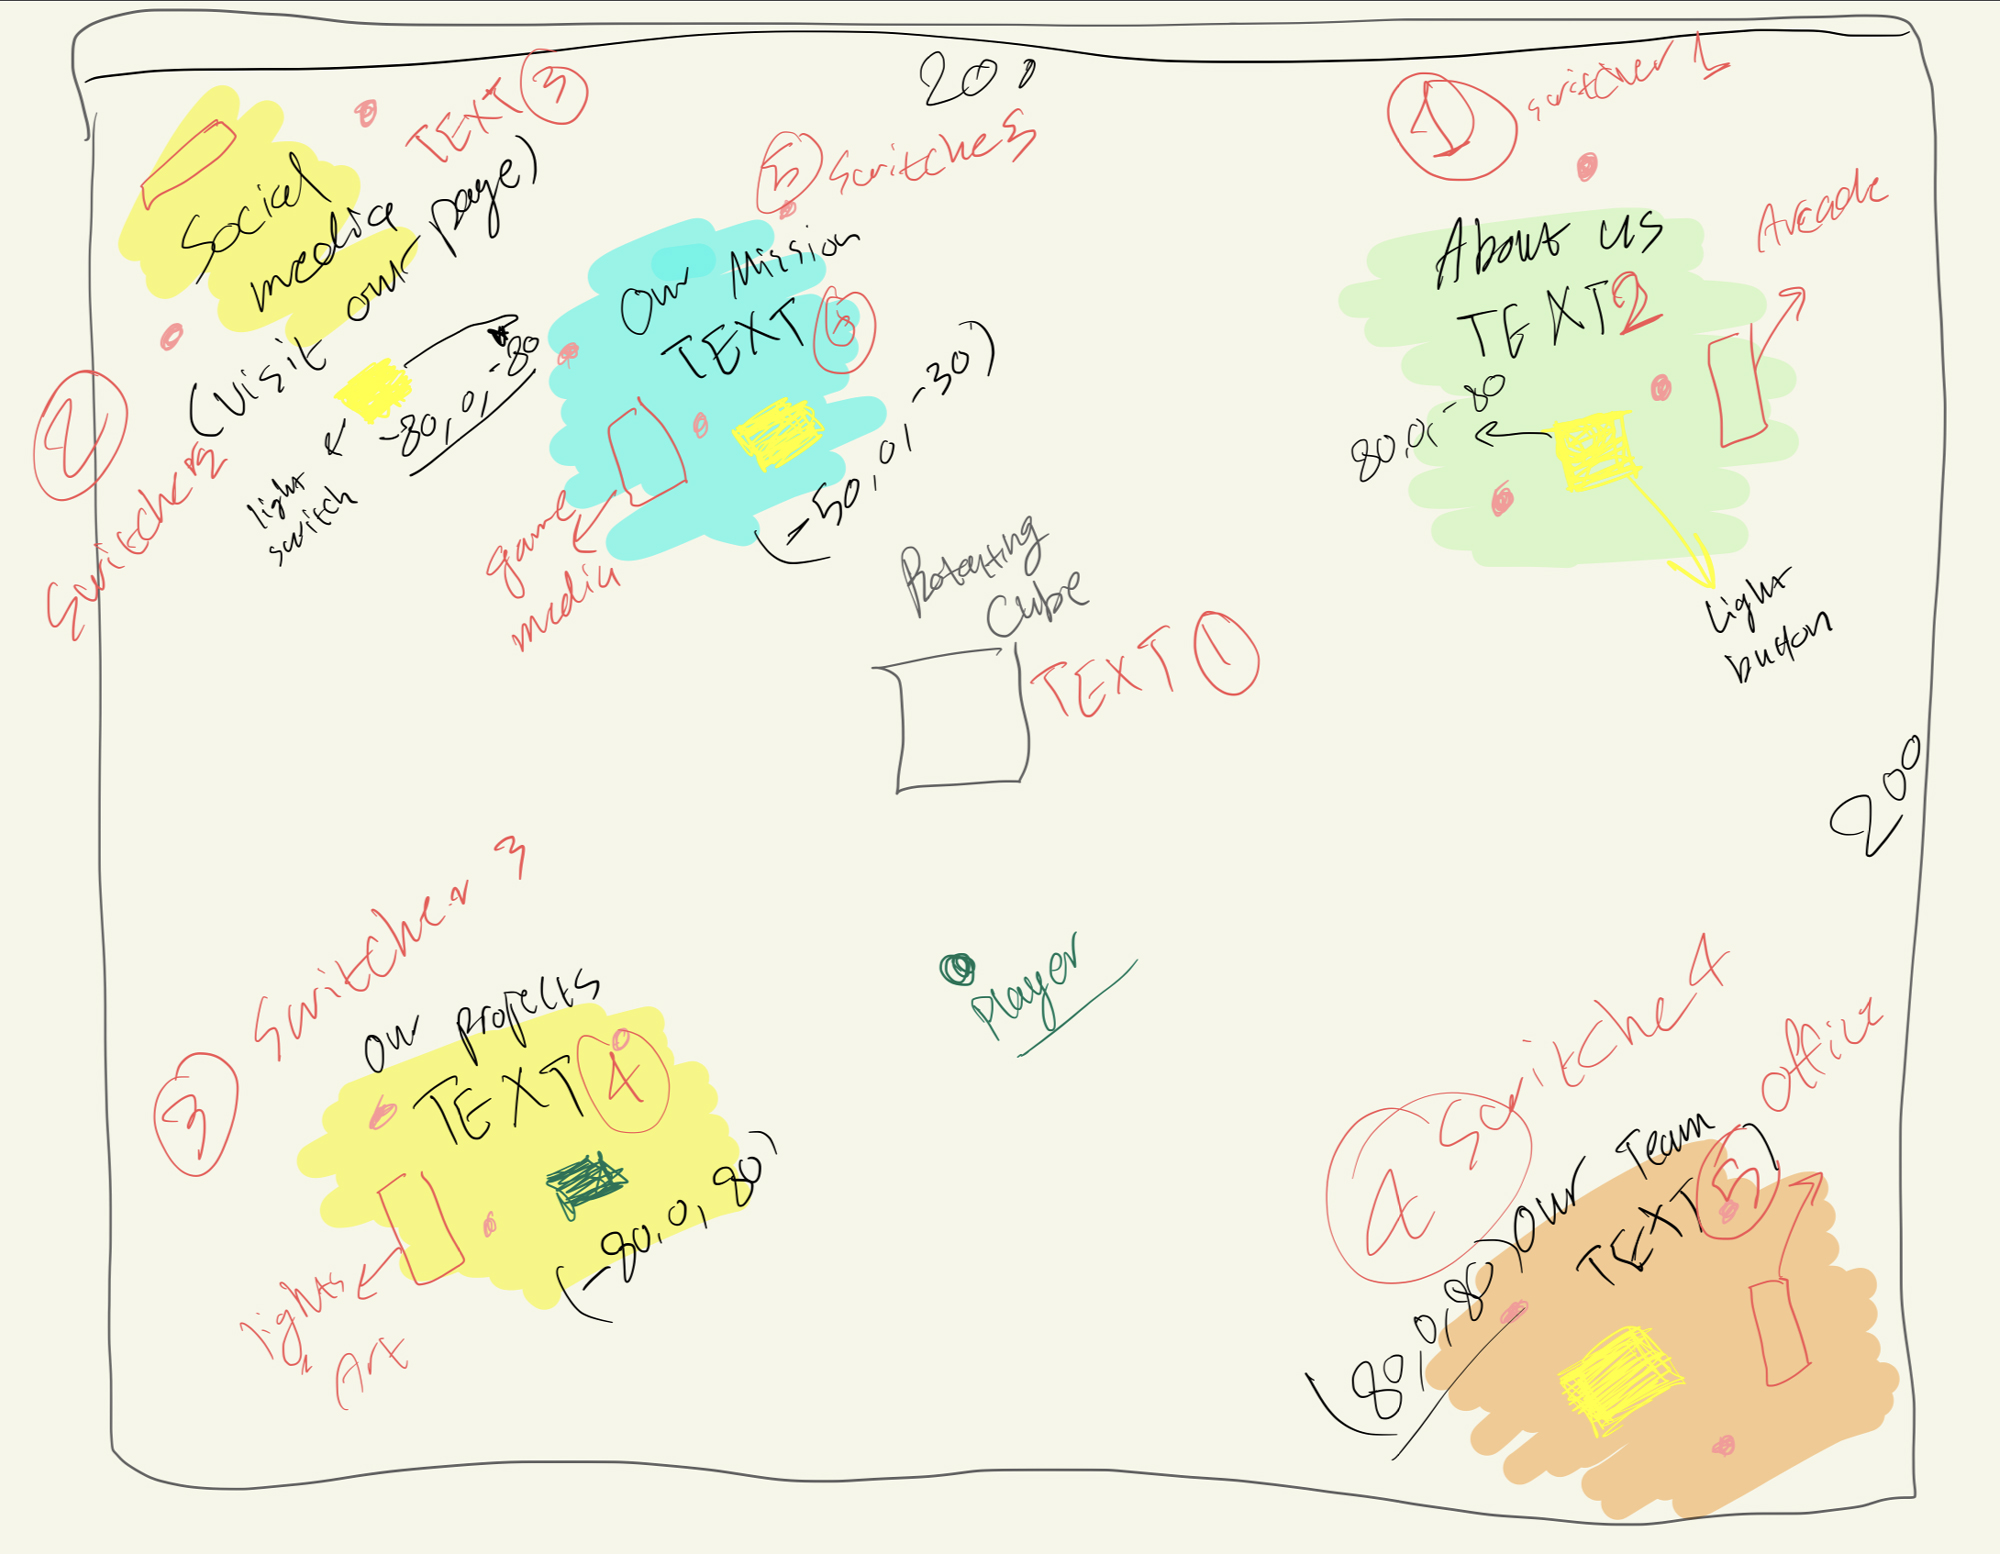 200
TEXT 3
Social
media
(visit our page)
light
switch
-80, 0, -80
2
Switcher 2
5 Switche 5
Our Mission
TEXT
(-50, 0, -30)
game
media
1 switcher 1
Arcade
About us
TEXT 2
80, 0, -80
light
button
Rotating
Cube
TEXT 1
200
Player
Switcher 3
3
Our projects
TEXT 4
(-80, 0, 80)
lights
Art
Switche 4
4
Office
Our Team
TEXT 5
(80, 0, 80)